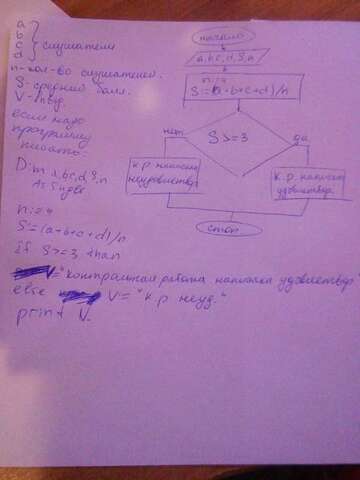 a
b
c
d
слушатели
n-кол-во слушателей.
S-средний балл.
V-вывод.
если надо
программу
писать:
Dim a,b,c,d,S,n
As Single
n:=4
S:=(a+b+c+d)/n
if S>=3 than
V="контрольная работа написана удовлетвор
else V:="к.р неуд."
print V.
начало
a,b,c,d,S,n
n:=4
S:=(a+b+c+d)/n
нет
S>=3
да
к.р. написана
неудовлетвор
к.р. написана
удовлетвор.
стоп